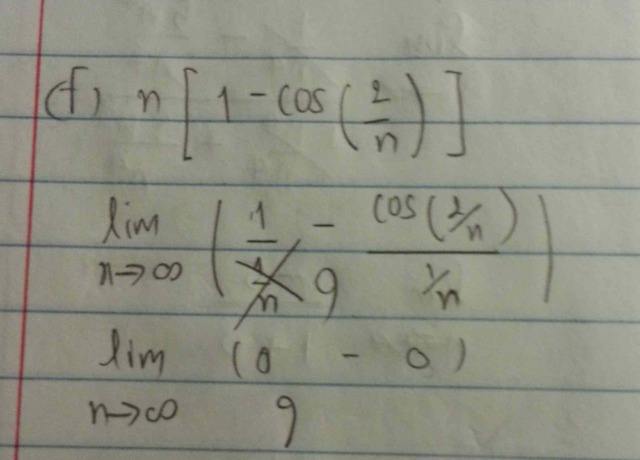 (f) n [ 1 - cos ( 2/n ) ]
lim n→∞ ( 1/ 9 - cos(2/n) / 1/n )
lim n→∞ (0 - 0)
9